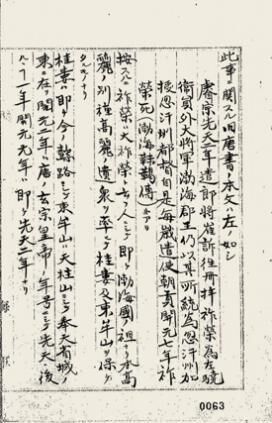 此事ニ関スル旧唐書ノ本文ハ左ノ如シ
睿宗先天二年遣郎将崔訢往冊拜祚榮為左驍
衛員外大将軍渤海郡王仍以其所統為忽汗州加
授忽汗州都督自是毎歳遣使朝貢開元七年祚
榮死（渤海靺鞨傳ニアリ）
按スルニ祚榮ハ大祚榮ト云フ人ニシテ即チ渤海國ノ祖ナリ本高
麗ノ別種高麗ノ遺衆ヲ率テ桂婁及東牟山ヲ保ツ
タルモノナリ
桂婁ハ即チ今ノ
東ニ在リ開元二年ハ唐ノ玄宗皇帝ノ年号ニシテ先天ノ後
開元元年ハ即チ先天二年ナリ
0063